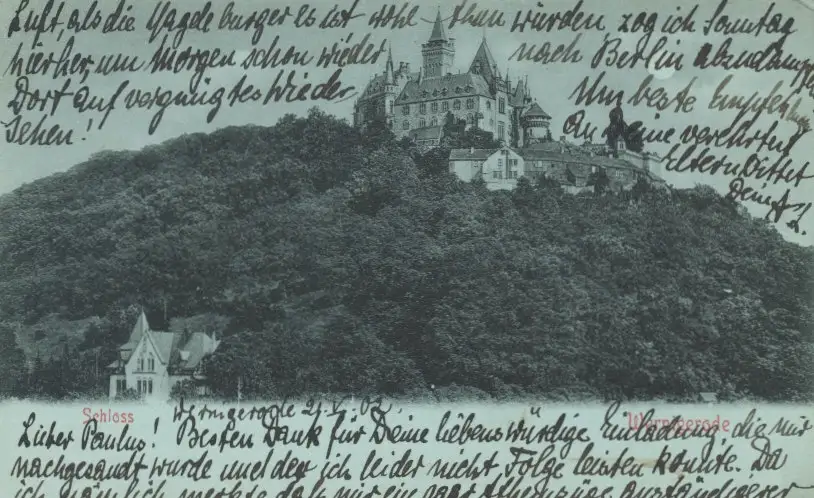 Luft, als die Magdeburger es ist wohl thun würden, zog ich Sonntag
hierher, um Morgen schon wieder nach Berlin abzudampfen
Dort auf vergnügtes Wieder
sehen!
Um beste Empfehlung
an Deine verehrten
Eltern bittet
Dein
Schloss Wernigerode
Wernigerode 21.V.02.
Lieber Paulus! Besten Dank für Deine liebenswürdige Einladung, die mir
nachgesandt wurde und der ich leider nicht Folge leisten konnte. Da
ich nämlich merkte daß mir ein paar Athemzüge anständigerer